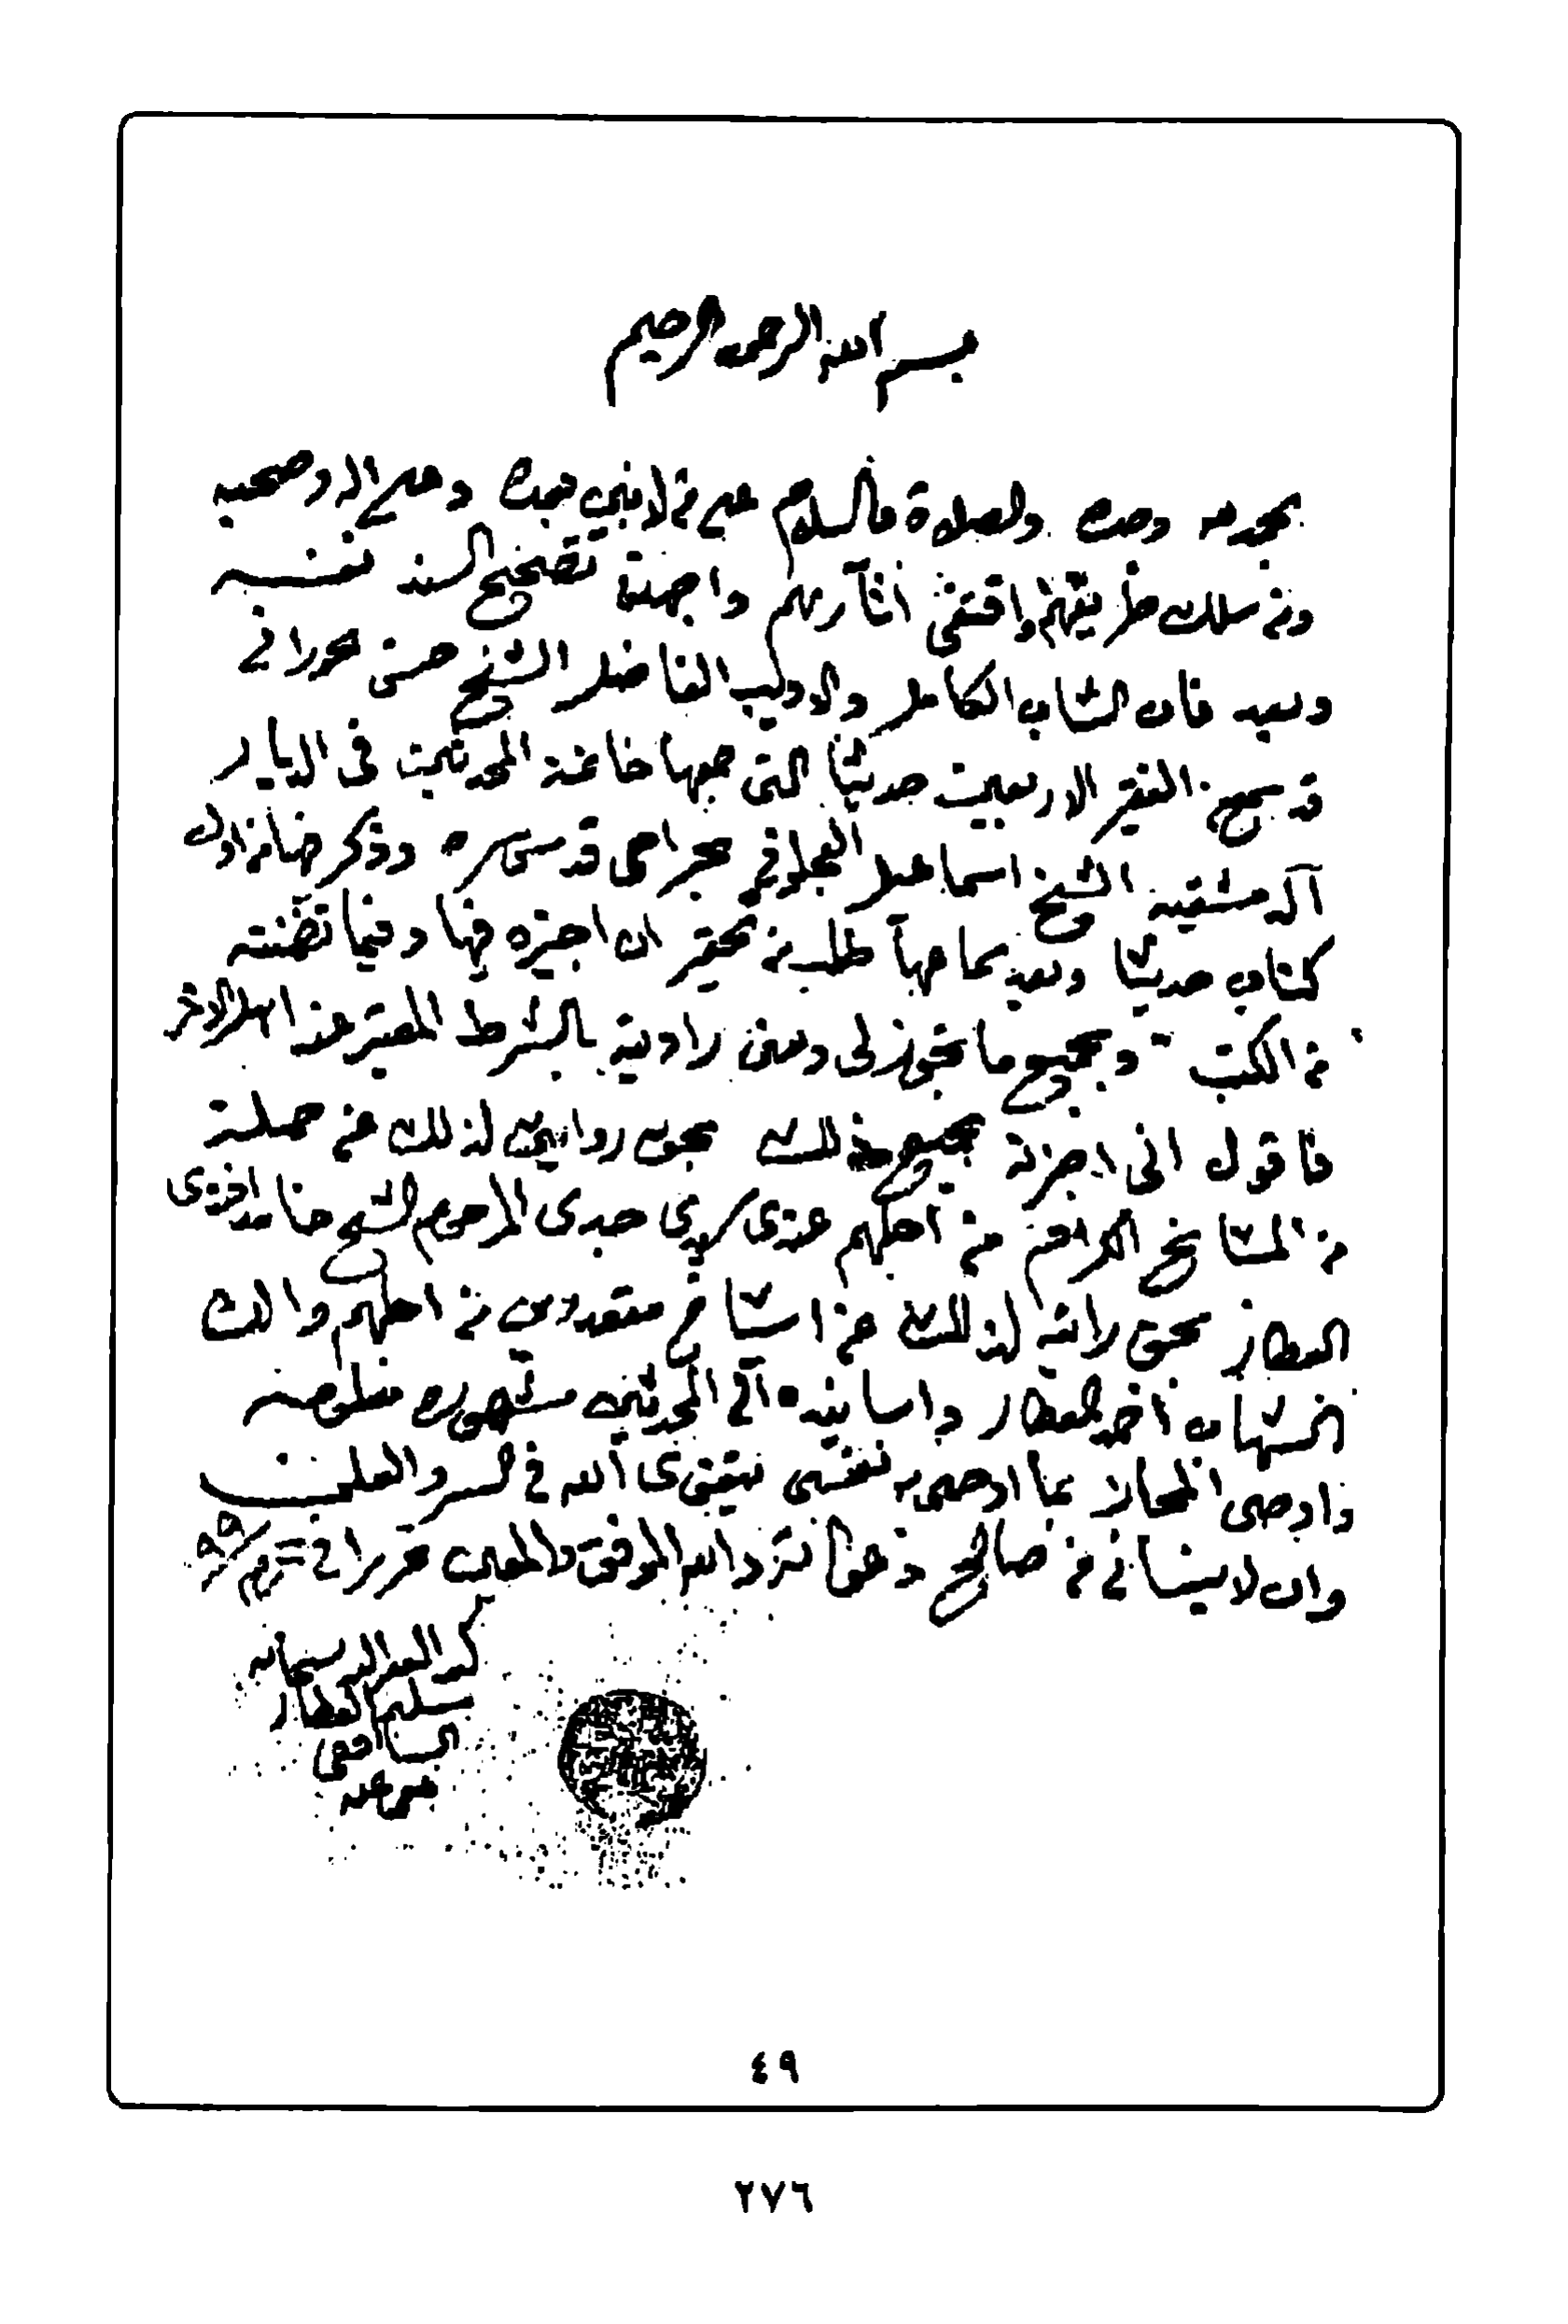 بسم الله الرحمن الرحيم
بحمد الله وحده والصلاة والسلام على من لا نبي بعده وعلى آله وصحبه
ومن سلك طريقتهم واقتفى آثارهم واجهد تصحيح السند نفسه
وبعد فان الشاب الكامل والاديب الفاضل الشيخ حسن
قد سمع من الفقير الاربعين حديثا التي جمعها خاتمة المحدثين في الديار
الدمشقية الشيخ اسماعيل العجلوني الجراحي قدس سره وذكر فيها من اول كل
كتاب حديثا وبعد سماعها طلب من الحقير ان اجيزه فيها وفيما تضمنته
من الكتب وبجميع ما تجوز لي وعني روايته بالشرط المعتبر عند اهل الاثر
فاقول اني اجزته بجميع ذلك بحق روايتي لذلك عن جملة
من المشايخ الكرام من اجلهم سيدي جدي المرحوم الشيخ حامد افندي
العطار بحق روايته لذلك عن اشياخ متعددين من اجلهم والده
الشهاب احمد العطار واسانيده الى المحدثين مشهورة معلومة
واوصي المجاز بما اوصي به نفسي بتقوى الله في السر والعلن
وان لا ينساني من صالح دعواته والله الموفق والمعين تحريرا في
كتبه العبد اليه سبحانه
سليم العطار
الشافعي
عفي عنه
٤٩
٢٧٦